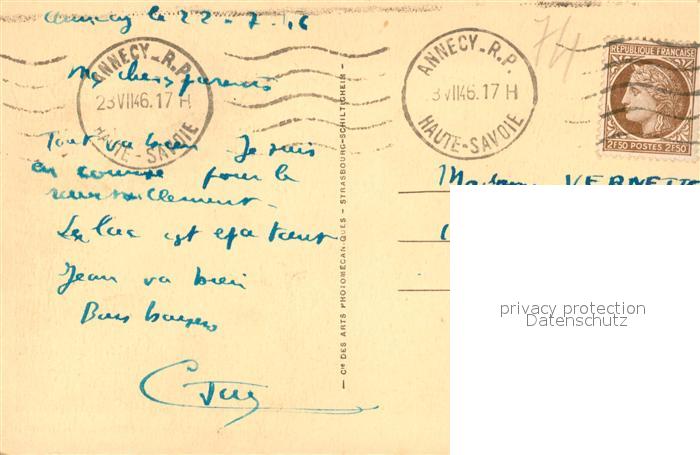 Annecy le 22-7-46
ANNECY-R.P.
23 VII 46. 17 H
HAUTE-SAVOIE
ANNECY-R.P.
3 VII 46. 17 H
HAUTE-SAVOIE
74
RÉPUBLIQUE FRANÇAISE
2F50 POSTES 2F50
Mes chers parents
Tout va bien Je suis
en course pour le
ravitaillement.
Le Lac est epatant
Jean va bien
Bons baisers
Cie DES ARTS PHOTOMÉCANIQUES - STRASBOURG-SCHILTIGHEIM
Madame VERNETTE
privacy protection
Datenschutz